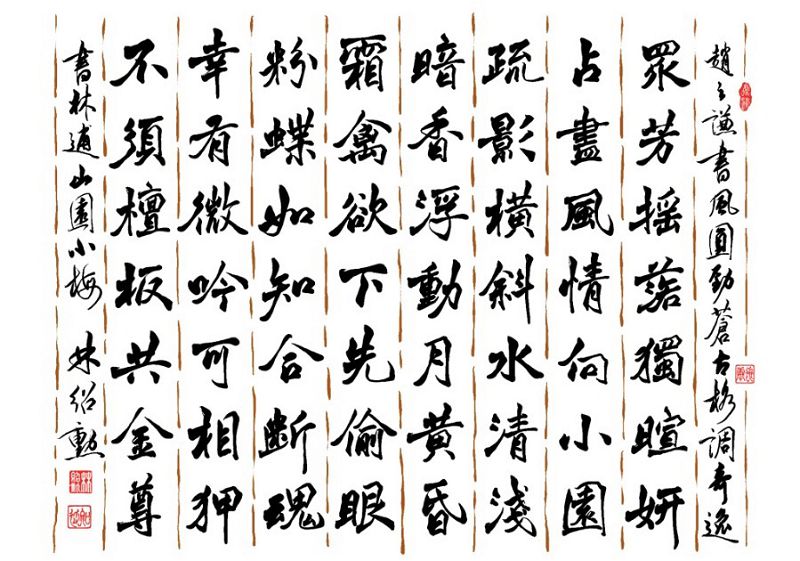 趙之謙書風圓勁蒼古格調奇逸
眾芳搖落獨暄妍
占盡風情向小園
疏影橫斜水清淺
暗香浮動月黃昏
霜禽欲下先偷眼
粉蝶如知合斷魂
幸有微吟可相狎
不須檀板共金尊
書林逋山園小梅 林紹勳